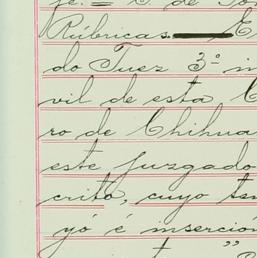 je. = C. de
Rúbricas. — E
do Juez 3º in
vil de esta C
ro de Chihua
este juzgado
crito, cuyo ten
yó é inserción